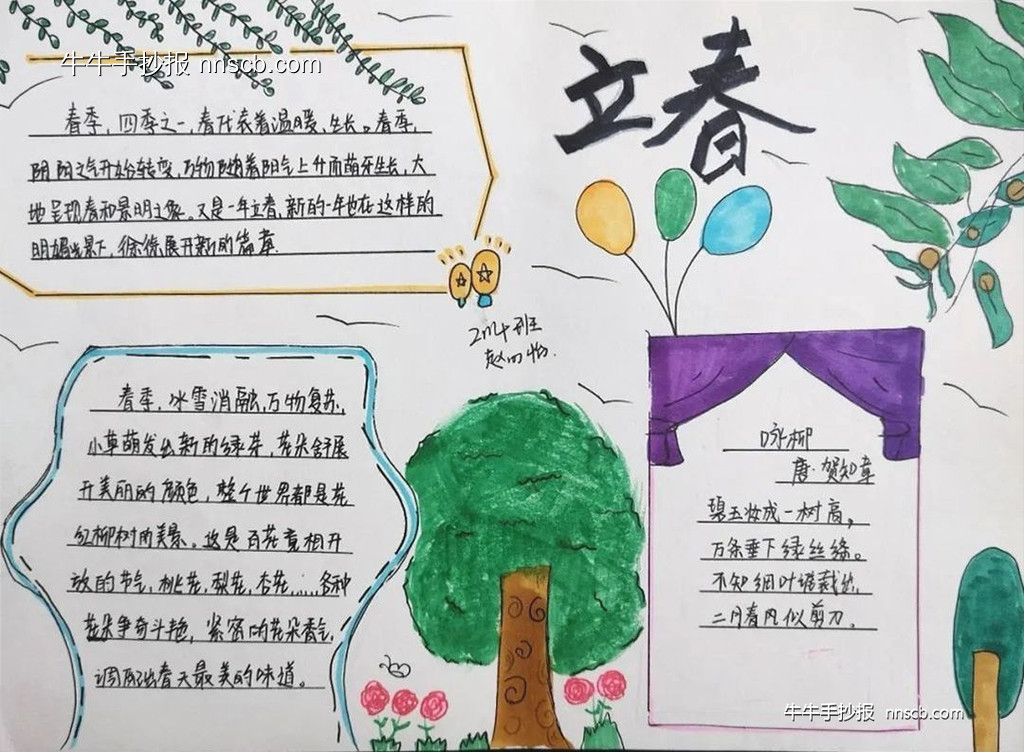 牛牛手抄报 nnscb.com
立春
春季,四季之一,春代表着温暖、生长。春季,
阴阳之气开始转变,万物随着阳气上升而萌牙生长,大
地呈现春和景明之象。又是一年立春,新的一年也在这样的
明媚光景下,徐徐展开新的篇章.
班
春季,冰雪消融,万物复苏,
小草萌发出新的绿芽,花朵舒展
开美丽的颜色,整个世界都是花
红柳树的美景。这是百花竞相开
放的节气,桃花,梨花,杏花......各种
花朵争奇斗艳,紧密的花朵香气,
调配出春天最美的味道。
咏柳
唐·贺知章
碧玉妆成一树高,
万条垂下绿丝绦。
不知细叶谁裁出,
二月春风似剪刀。
牛牛手抄报 nnscb.com